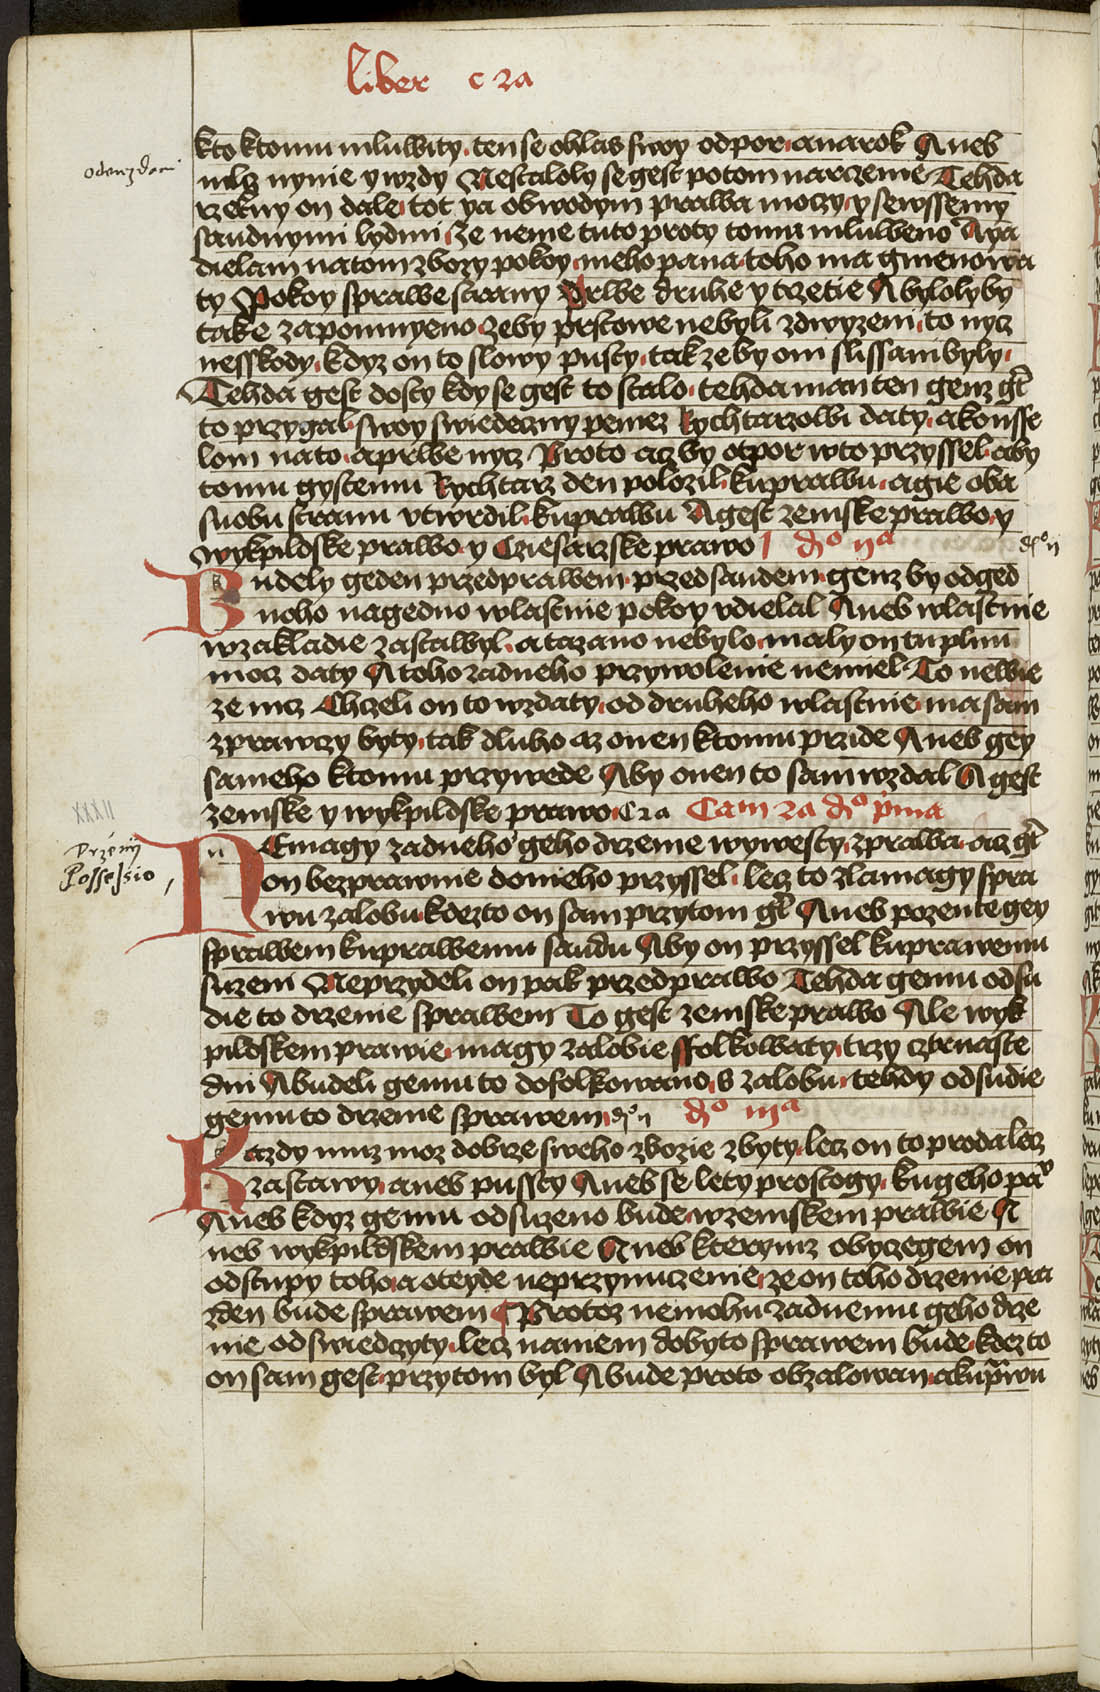 liber c 2a
kto ktomu mluwity. ten se ohlas swoy odpor. a narok Aneb
odewzdani
mlcz nynie y wzdy Nestaloly se gest potom narzeenie Tehda
rzekny on dale. tot ya obwodym prawa moczy. y se wssemy
saudnymi lydmi. ze neme tuto proty tomu mluweno A ya
dielam na tom zbozy pokoy. meho pana. toho ma gmenowa
ty Pokoy sprawe starany Prwe druhe y trzetie A byloly by
take zapomnyeno. zeby prstowe nebyli zdwyzeni. to nycz
nesskody. kdyz on to slowy pusty. tak ze by oni slissani byly.
Tehda gest dosty kdy se gest to stalo. tehda man ten genz gt
to przygal. swoy swiedeczny peniez Rychtarzowi daty. a konsse
lom na to. a prwe nycz Proto acz by otpor w to przyssel. aby
tomu gystemu Rychtarz den polozil. kuprawu. a gie oba
su obu stranu vtwrdil. kuprawu A gest zemske prawo. y
wykpildske prawo. y Cziesarzske prawo do iia do ii
Budely geden przed prawem. przed saudem. genz by od ged
noho na gedno wlastnie pokoy vdielal Aneb wlastnie
w zakladie zastawyl. a tazano nebylo. maly on tu plnu
mocz daty A toho zadneho przywolenie nemiel To newie
ze nicz Chczeli on to wzdaty. od druheho wlastnie. ma sam
zprawczy byty. tak dluho az onen ktomu przide Aneb gey
sameho ktomu przywede Aby onen to sam wzdal A gest
zemske y wykpildske prawo. c 2a Cam 2a do prima
XXXII
Drzenij
Possessio
NEmagy zadneho geho drzenie wywesty. z prawa. acz gt
on bezprawnie do nieho przyssel. lecz to zlamagy spra
wu zalobu. kdezto on sam przytom gt Aneb pozente gey
sprawem kuprawemu saudu Aby on przyssel kuprawemu
suzeni Neprzydeli on pak przed prawo Tehda gemu odsu
die to drzenie sprawem To gest zemske prawo Ale wyk
pildskem prawie. magy zalobie ffolkowaty. trzy cztrnaste
dni A budeli gemu to dofolkowano. s zalobu. tehdy odsudie
gemu to drzenie sprawem. do ii do iiia
Kazdy muz moz dobrze sweho zbozie zbyty. lecz on to proda lecz
zastawy. aneb pussty Aneb se lety prostogy. kugeho pa
Aneb kdyz gemu odsuzeno bude. w zemskem prawie A
neb wykpildskem prawie Aneb kterymz obyczegem on
odstupy toho. a oteyde neprzynuczenie. ze on toho drzenie pra
zden bude sprawem Protoz nemohu zadnemu geho drze
nie odswiedczyty. lecz namem dobyto sprawem bude. kdezto
on sam gest. przytom byl A bude proto obzalowan. a kuprawu